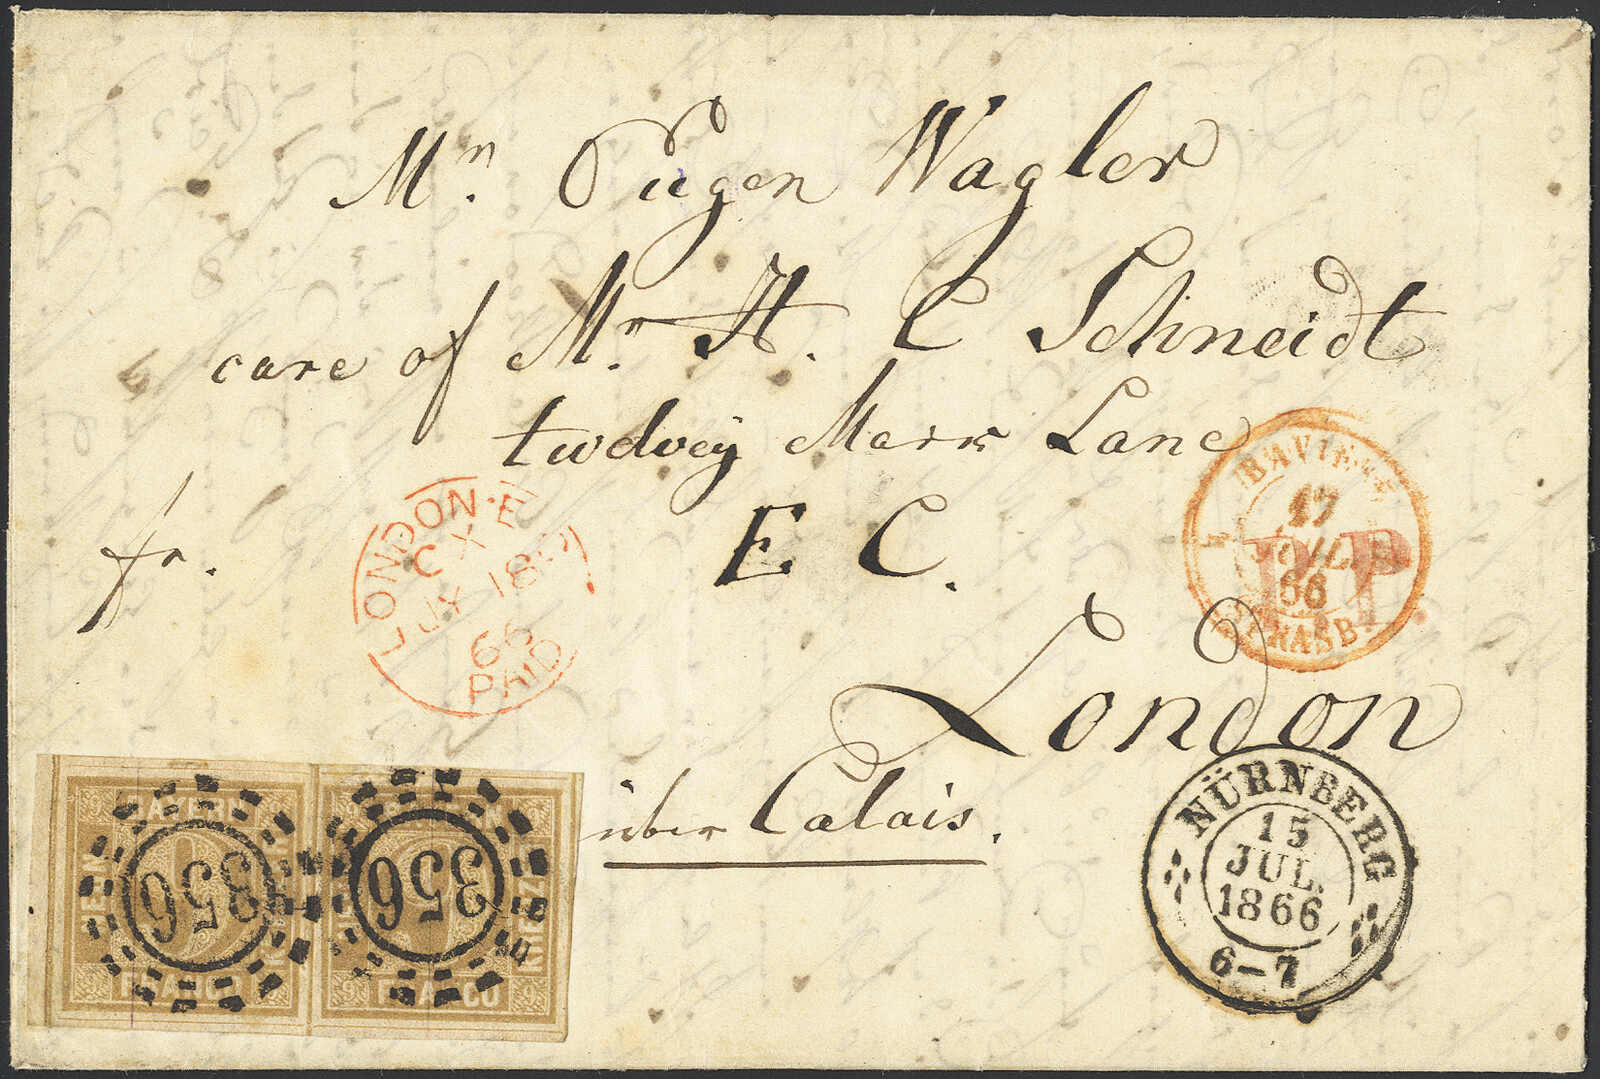 Mr. Eugen Wagler
care of Mr. H. C Schneidt
twelvey Mark Lane
fr.
E C.
London
über Calais.
LONDON·E
C X
JY 18
66
PAID
BAVIERE
17
JUIL
66
STRASB.
P.P.
NÜRNBERG
15
JUL.
1866
6–7
356
356
9
KREUZER
FRANCO
9
9
KREUZER
FRANCO
9